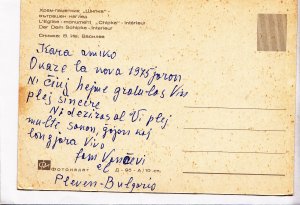 Храм-паметник „Шипка“ –
вътрешен изглед
L'Eglise - monument „Chipka“ - Intérieur
Der Dom Schipka - Interieur
Снимка: В. Ив. Василев
Kara amiko
Okaze la nova 1975 jaron
Ni ĉiuj hejme gratulas Vin
plej sincere
Ni deziras al Vi plej
multe sanon, ĝojon kaj
longjara vivo
fam
el
Pleven - Bulgario
ФОТОИЗДАТ Д-95-А/10 ст.